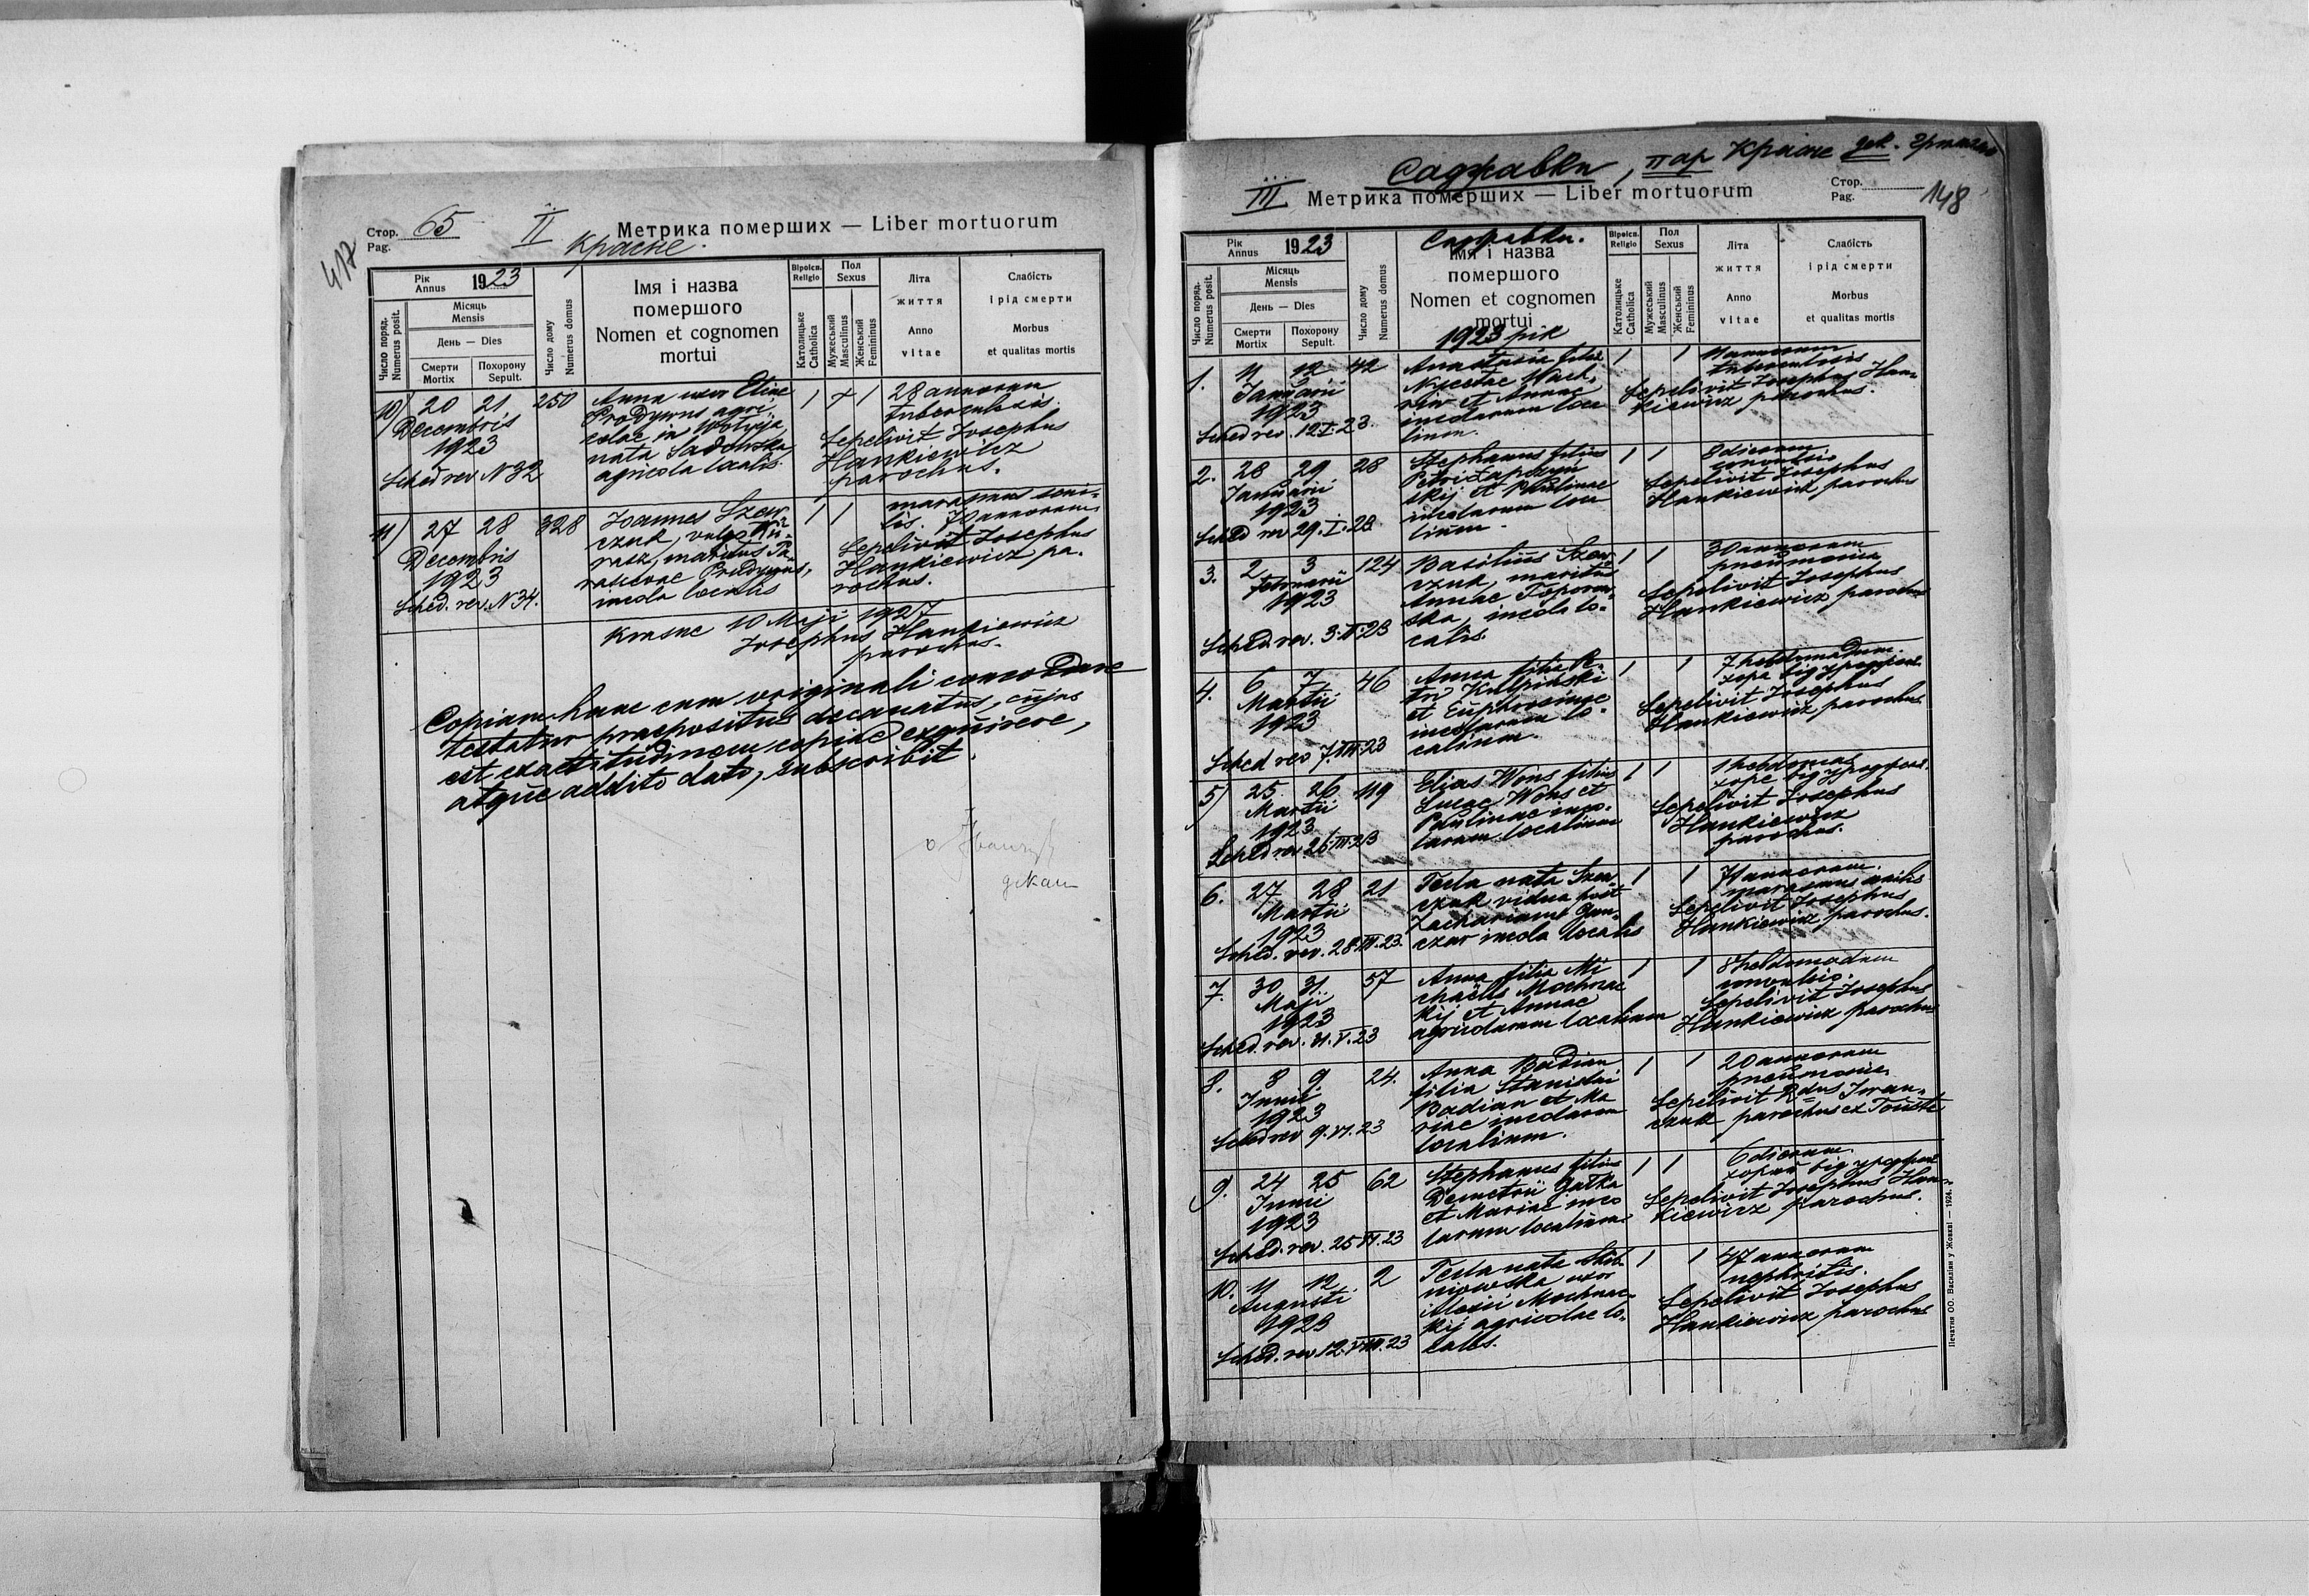 417
Стор. 65 II Метрика померших — Liber mortuorum
Pag.
Красне.
Рік
Annus 1923
Місяць
Mensis
День — Dies
Смерти
Mortix
Похорону
Sepult.
Число поряд.
Numerus posit.
Число дому
Numerus domus
Імя і назва
помершого
Nomen et cognomen
mortui
Віроісп.
Religio
Католицьке
Catholica
Пол
Sexus
Мужеський
Masculinus
Женський
Femininus
Літа
життя
Anno
vitae
Слабість
і рід смерти
Morbus
et qualitas mortis
10) 20 21 250
Decembris
1923
Sched rev N 32
Anna uxor Eliae
Prodywus agri-
colae in
nata Sadowska
agricola localis.
1 1
28 annorum
tuberculosis.
Sepelivit Josephus
Hankiewicz
parochus.
11) 27 28 328
Decembris
1923
Sched. rev. N 34.
Joannes Szew-
czuk, vulgo
maritus Pa-
Prodywus,
incola localis
1 1
marasmus seni-
lis. 70 annorum
Sepelivit Josephus
Hankiewicz pa-
rochus.
Krasne 10 Maji 1927
Josephus Hankiewicz
parochus.
Copiam hanc cum originali concordare
testatur praepositus decanatus, cujus
est exactitudinem copiae exquirere,
atque addito dato, subscribit.
декан
Саджавки, пар Красне дек.
III Метрика померших — Liber mortuorum
Стор.
Pag. 148
Рік
Annus 1923
Місяць
Mensis
День — Dies
Смерти
Mortix
Похорону
Sepult.
Число поряд.
Numerus posit.
Число дому
Numerus domus
Саджавки.
Імя і назва
помершого
Nomen et cognomen
mortui
1923 рік
Віроісп.
Religio
Католицьке
Catholica
Пол
Sexus
Мужеський
Masculinus
Женський
Femininus
Літа
життя
Anno
vitae
Слабість
і рід смерти
Morbus
et qualitas mortis
1. 11 12 42
Januarii
1923
Sched rev. 12.I.23.
Anastasia filia
Nycetae
et Annae
incolarum loca
lium.
1 1
annorum
tuberculosis
Sepelivit Josephus Han-
kiewicz parochus.
2. 28 29 28
Januarii
1923
Sched rev 29.I.23
Stephanus filius
Petri
skij et Paulinae
incolarum loca
lium.
1 1
8 dierum
convulsio
Sepelivit Josephus
Hankiewicz, parochus
3. 2 3 124
Februarii
1923
Sched. rev. 3.II.23
Basilius Szew-
czuk, maritus
Annae Toporow-
ska, incola lo-
calis.
1 1
30 annorum
pneumonia
Sepelivit Josephus
Hankiewicz parochus
4. 6 7 46
Martii
1923
Sched rev 7.III.23
Anna filia Pe-
tri Kulpinski
et Euphrosinae
incolarum lo-
calium.
1 1
7 hebdomadum.
хора від уродженя
Sepelivit Josephus
Hankiewicz, parochus
5) 25 26 119
Martii
1923
Sched. rev. 26.III.23
Elias Wons filius
Lucae Wons et
Paulinae inco-
larum localium
1 1
1 hebdomas
хоре від уродженя.
Sepelivit Josephus
Hankiewicz
parochus.
6. 27 28 21
Martii
1923
Sched. rev. 28.III.23.
Tecla nata Szew-
czuk vidua post
Zachariam Hon-
czar incola localis
1 1
annorum.
marasmus senilis
Sepelivit Josephus
Hankiewicz parochus.
7. 30 31 57
Maji
1923
Sched. rev. 31.V.23
Anna filia Mi
chaelis Mochnac
kij et Annae
agricolarum localium
1 1
8 hebdomadum
convulsio.
Sepelivit Josephus
Hankiewicz parochus
8. 8 9 24.
Junii
1923
Sched rev 9.VI.23
Anna Badian
filia Stanislai
Badian et Ma
riae incolarum
localium.
1 1
20 annorum
pneumonia
Sepelivit Rdus Iwan-
czuk parochus ex Touste
9. 24 25 62
Junii
1923
Sched. rev. 25 VI.23
Stephanus filius
Demetrii Gałka
et Mariae inco
larum localium
1 1
6 dierum.
хорий від уродженя
Sepelivit Josephus Han-
kiewicz parochus.
10. 11 12 2
Augusti
1923
Sched. rev 12.VIII.23
Tecla nata
niowska uxor
Alexii Mochnac-
kij agricolae lo-
calis.
1 1
47 annorum
nephritis.
Sepelivit Josephus
Hankiewicz parochus
Печатня ОО. Василіян у Жовкві — 1924.